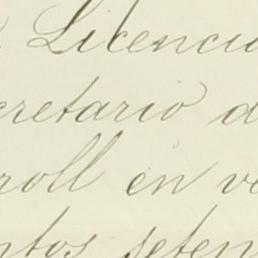 Licencia
cretario d
roll en ve
ntos seten